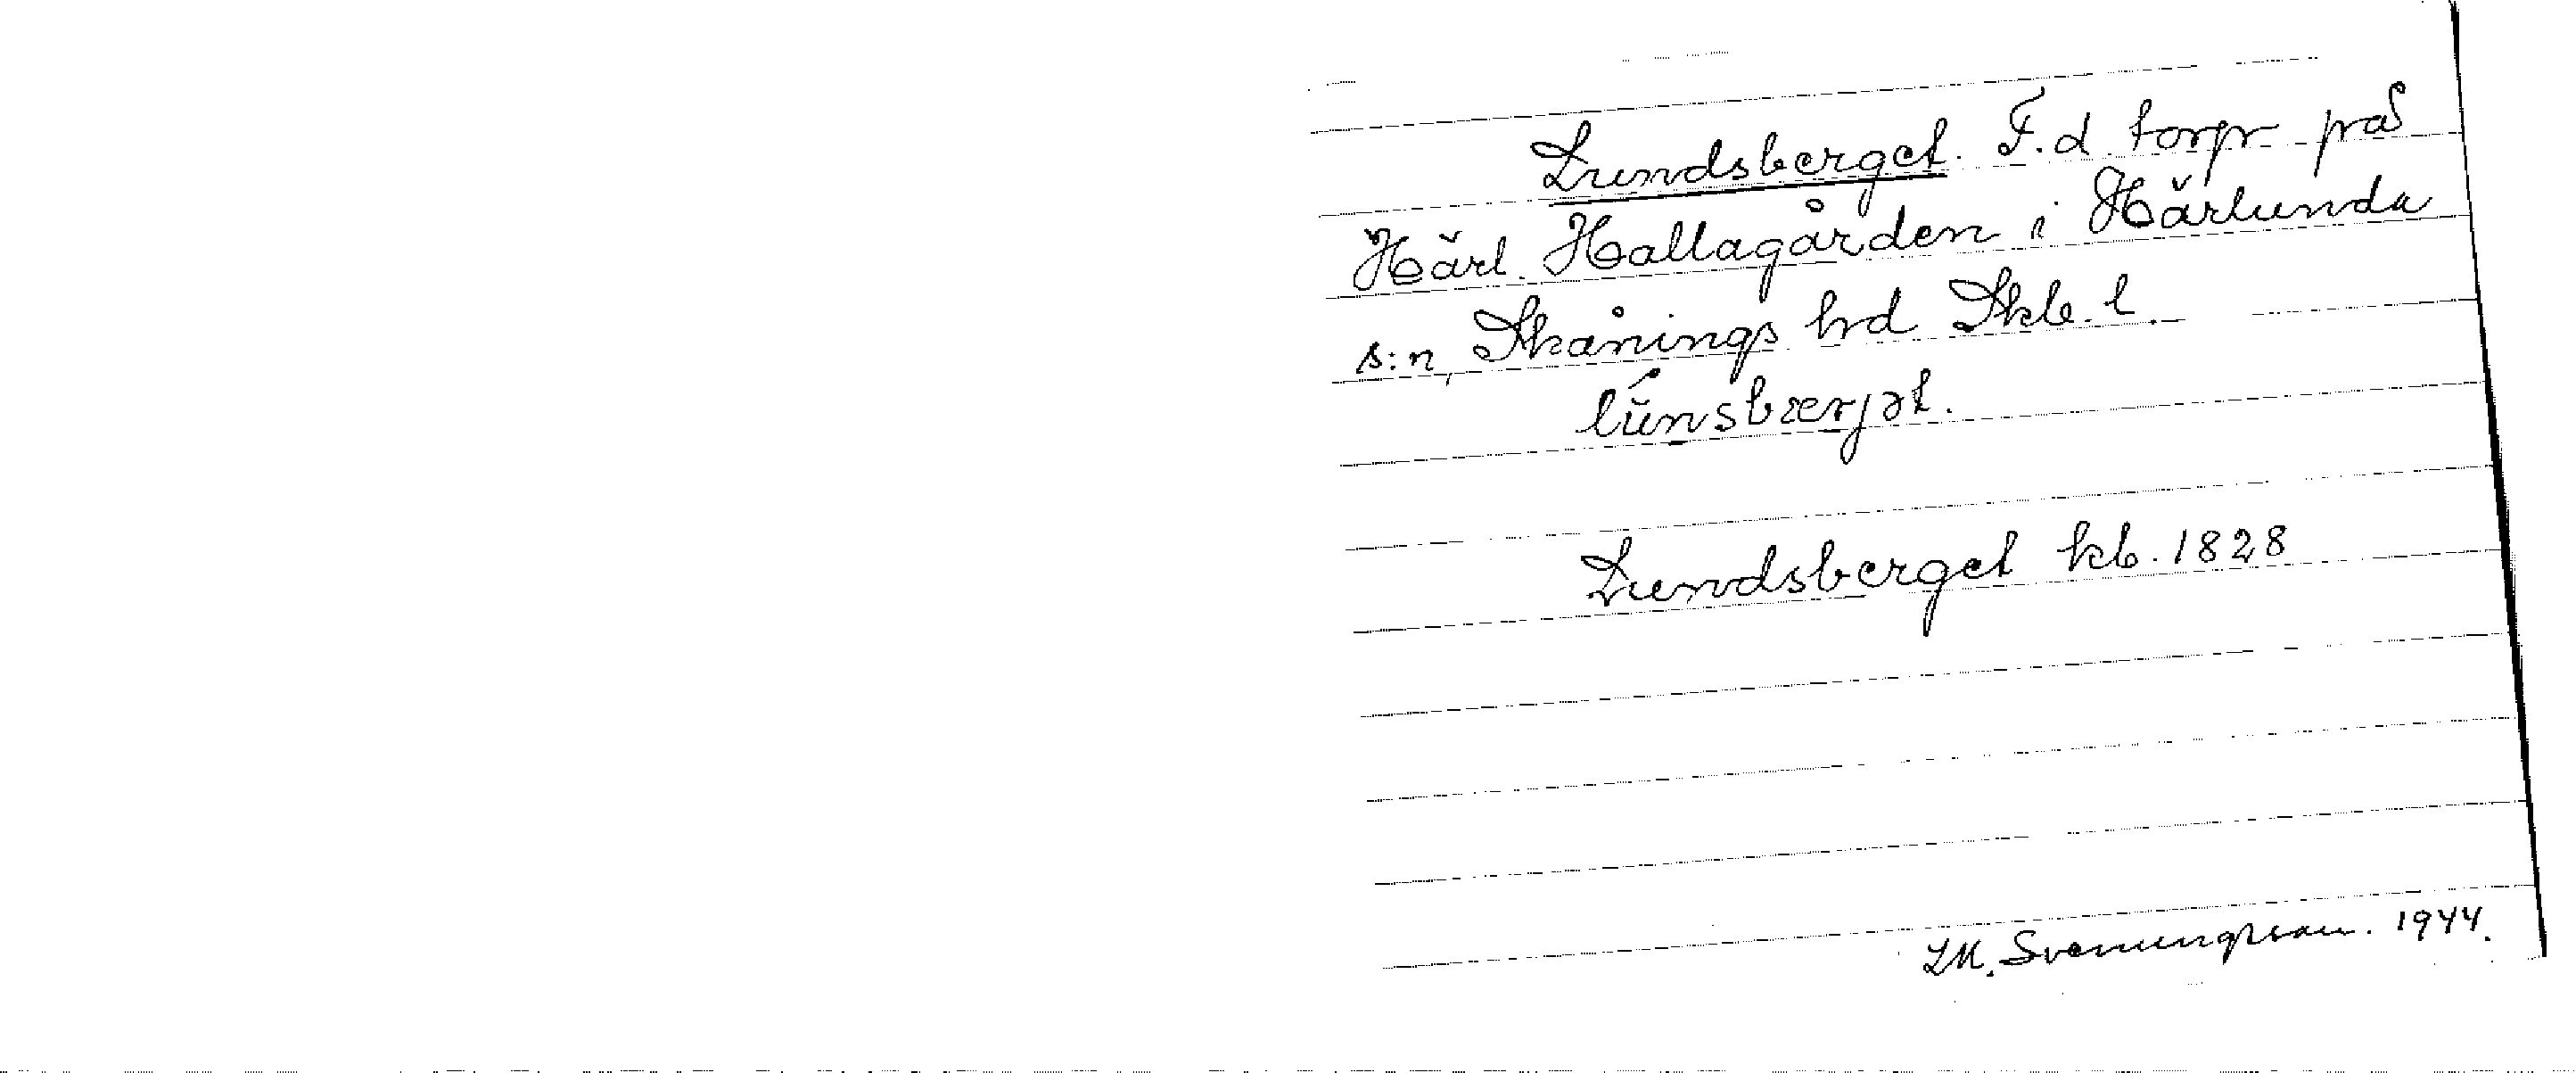 Lundsberget. F.d torp på
Härl. Hallagården i Härlunda
s:n, Skånings hd Skb. l.
lúnsbærjət.
Lundsberget kb. 1828
LM. Svenungsson. 1944.